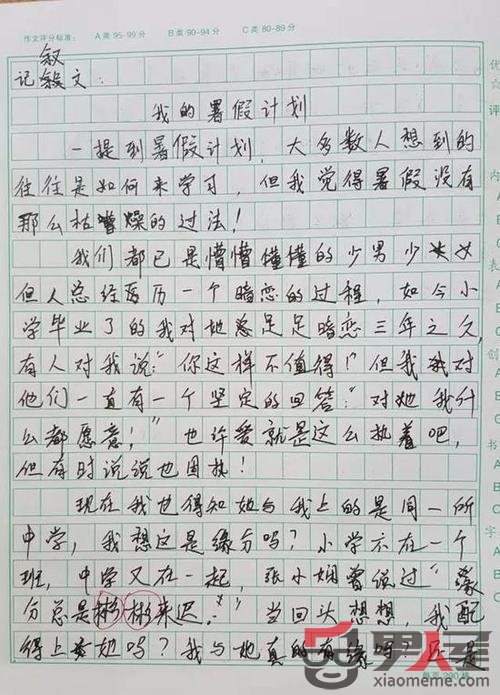 作文评分标准： A类 95-99分 B类 90-94分 C类 80-89分
优
叙
记 文：
评
我的暑假计划
一提到暑假计划，大多数人想到的
往往是如何来学习，但我觉得暑假没有
内
那么枯燥的过法！
我们都已是懵懵懂懂的少男少女
表
但人总经历一个暗恋的过程，如今小
学毕业了的我对她足足暗恋三年之久，
创
有人对我说：“你这样不值得！”但我对
他们一直有一个坚定的回答：“对她我什
么都愿意！”也许爱就是这么执着吧，
书
但有时说说也固执！
现在我也得知她与我上的是同一所
字
中学，我想这是缘分吗？小学亦在一个
班，中学又在一起，张小娴曾说过“缘
分总是彬彬来迟。”当回头想想，我配
得上她吗？我与她真的有缘吗？还是
男人窝
xiaomeme.com